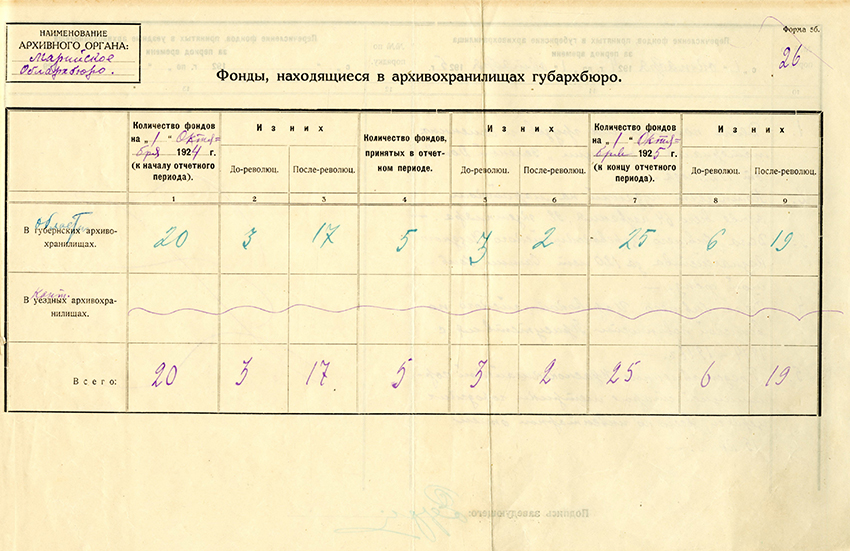 Форма 3б.
26
НАИМЕНОВАНИЕ
АРХИВНОГО ОРГАНА:
Марийское
Облархбюро.
Фонды, находящиеся в архивохранилищах губархбюро.
Количество фондов
на „1“ Октя=
бря 1924 г.
(к началу отчетного
периода).
Из них
До-революц.
После-революц.
Количество фондов,
принятых в отчет-
ном периоде.
Из них
До-революц.
После-революц.
Количество фондов
на „1“ Октя=
бря 1925 г.
(к концу отчетного
периода).
Из них
До-революц.
После-революц.
1 2 3 4 5 6 7 8 9
област
В губернских архиво-
хранилищах.
20 3 17 5 3 2 25 6 19
кант.
В уездных архивохра-
нилищах.
Всего: 20 3 17 5 3 2 25 6 19
Подпись заведующего: